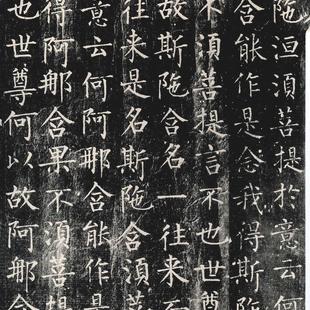 陁洹須菩提於意云何
含能作是念我得斯陁
不須菩提言不也世尊
故斯陁含名一往来而
往来是名斯陁含須菩
意云何阿那含能作是
得阿那含果不須菩提
也世尊何以故阿那含